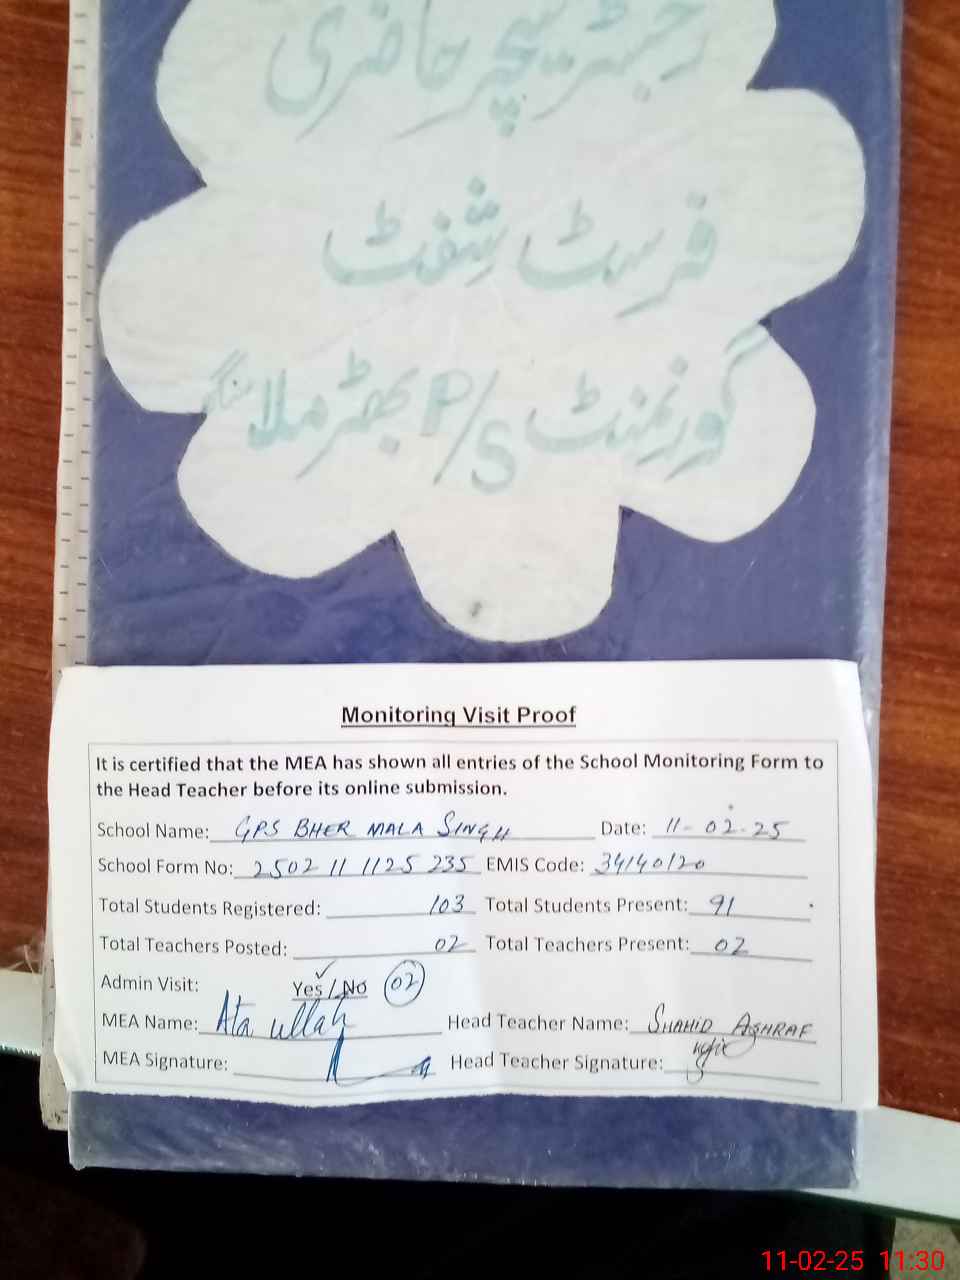 رجسٹر ٹیچر حاضری
فرسٹ شفٹ
گورنمنٹ P/S بھڑ ملا سنگھ
Monitoring Visit Proof
It is certified that the MEA has shown all entries of the School Monitoring Form to
the Head Teacher before its online submission.
School Name: GPS BHER MALA SINGH Date: 11-02-25
School Form No: 2502 11 1125 235 EMIS Code: 34140120
Total Students Registered: 103 Total Students Present: 91
Total Teachers Posted: 02 Total Teachers Present: 02
Admin Visit: Yes / No 02
MEA Name: Ata ullah Head Teacher Name: SHAHID ASHRAF
MEA Signature: Head Teacher Signature:
11-02-25 11:30